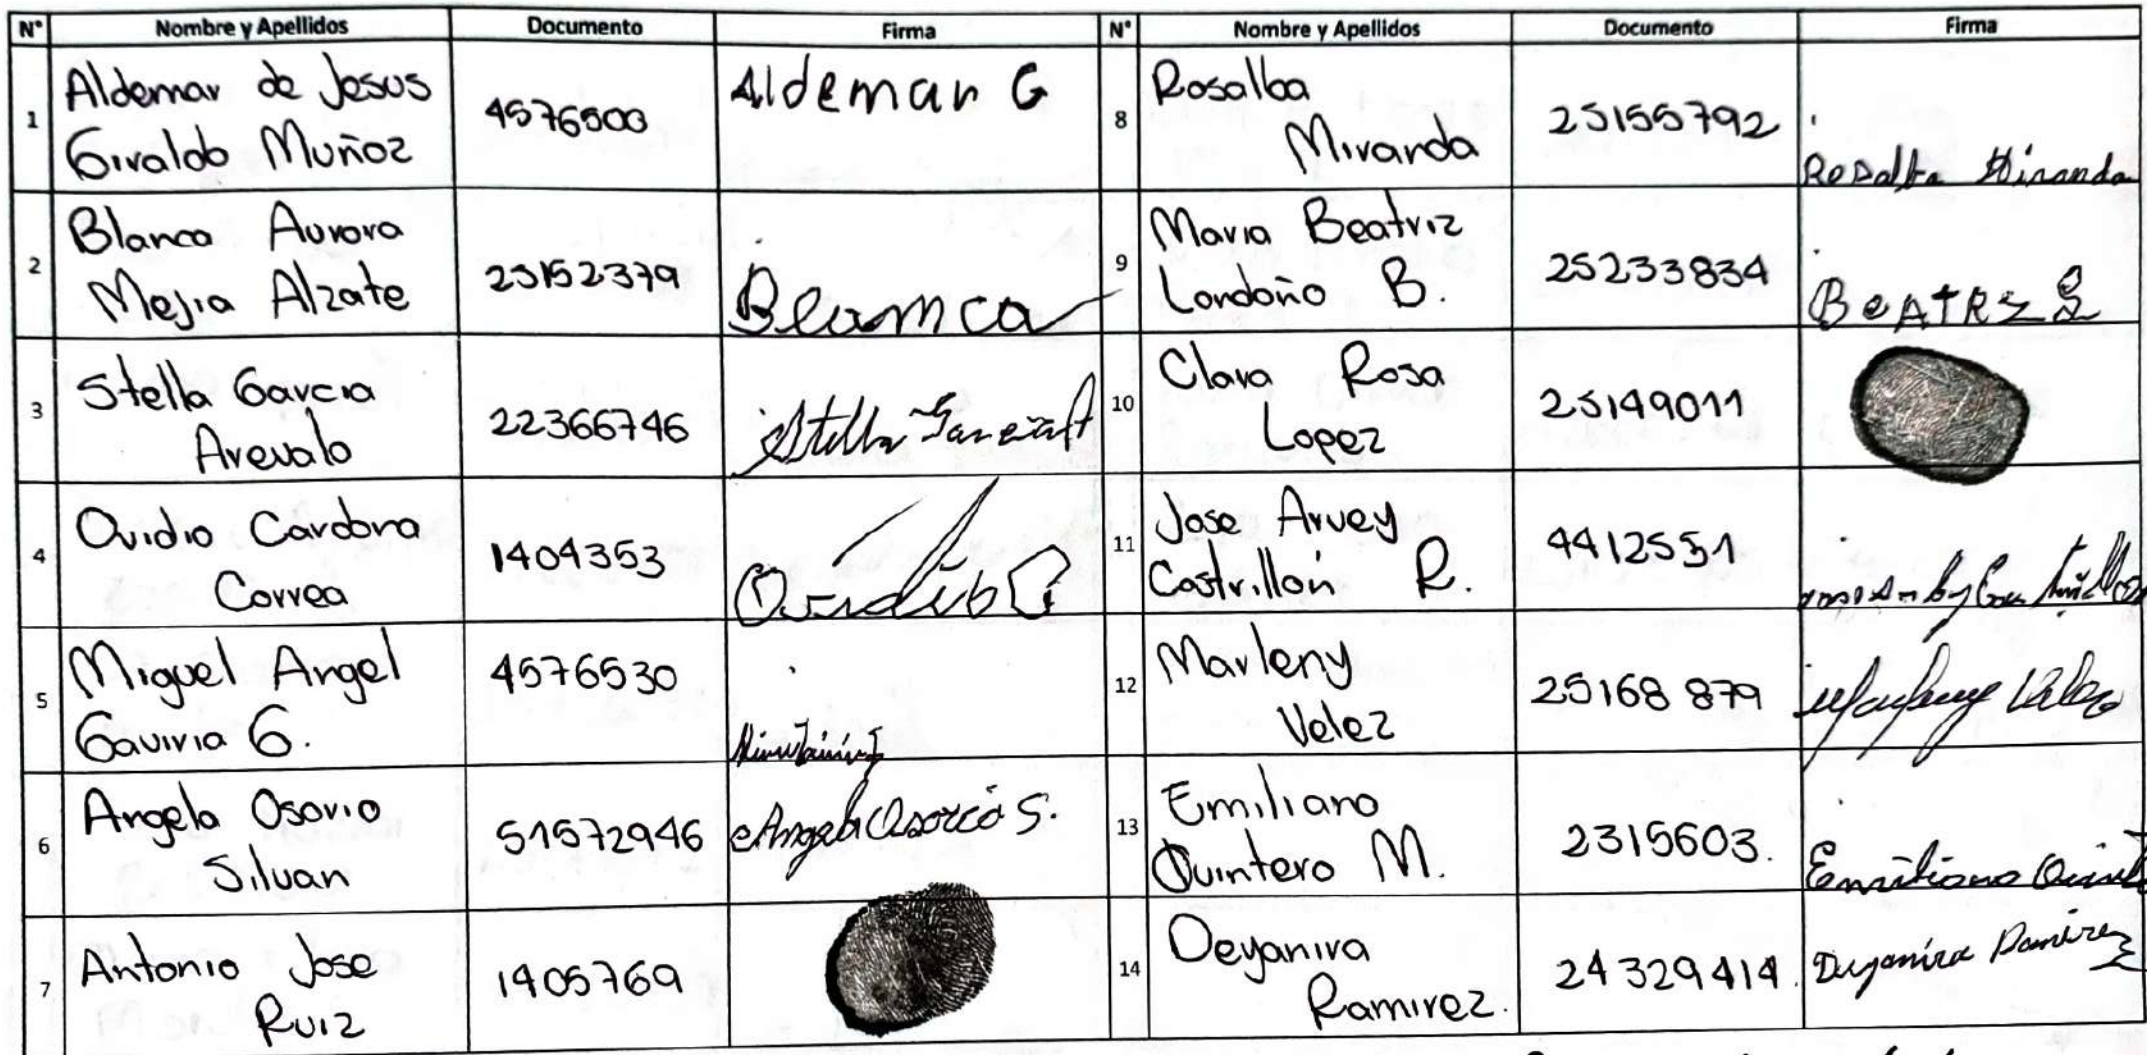 N° Nombre y Apellidos Documento Firma N° Nombre y Apellidos Documento Firma
1 Aldemar de Jesus
Giraldo Muñoz
4576503
Aldemar G
2 Blanca Aurora
Mejia Alzate
25152379
Blamca
3 Stella Garcia
Arevalo
22366746
Stella Garcia A
4 Ovidio Cardona
Correa
1404353
Ovidio C
5 Miguel Angel
Gaviria G.
4576530
6 Angela Osorio
Silvan
51572946
Angela Osorio S.
7 Antonio Jose
Ruiz
1405769
8 Rosalba
Miranda
25155792
Rosalba Miranda
9 Maria Beatriz
Londoño B.
25233834
BeATRZ L
10 Clara Rosa
Lopez
25149011
11 Jose Arvey
Castrillon R.
4412551
12 Marleny
Velez
25168 879
Marleny Velez
13 Emiliano
Quintero M.
2315603.
Emiliano
14 Deyanira
Ramirez.
24 329 414.
Deyanira Ramirez